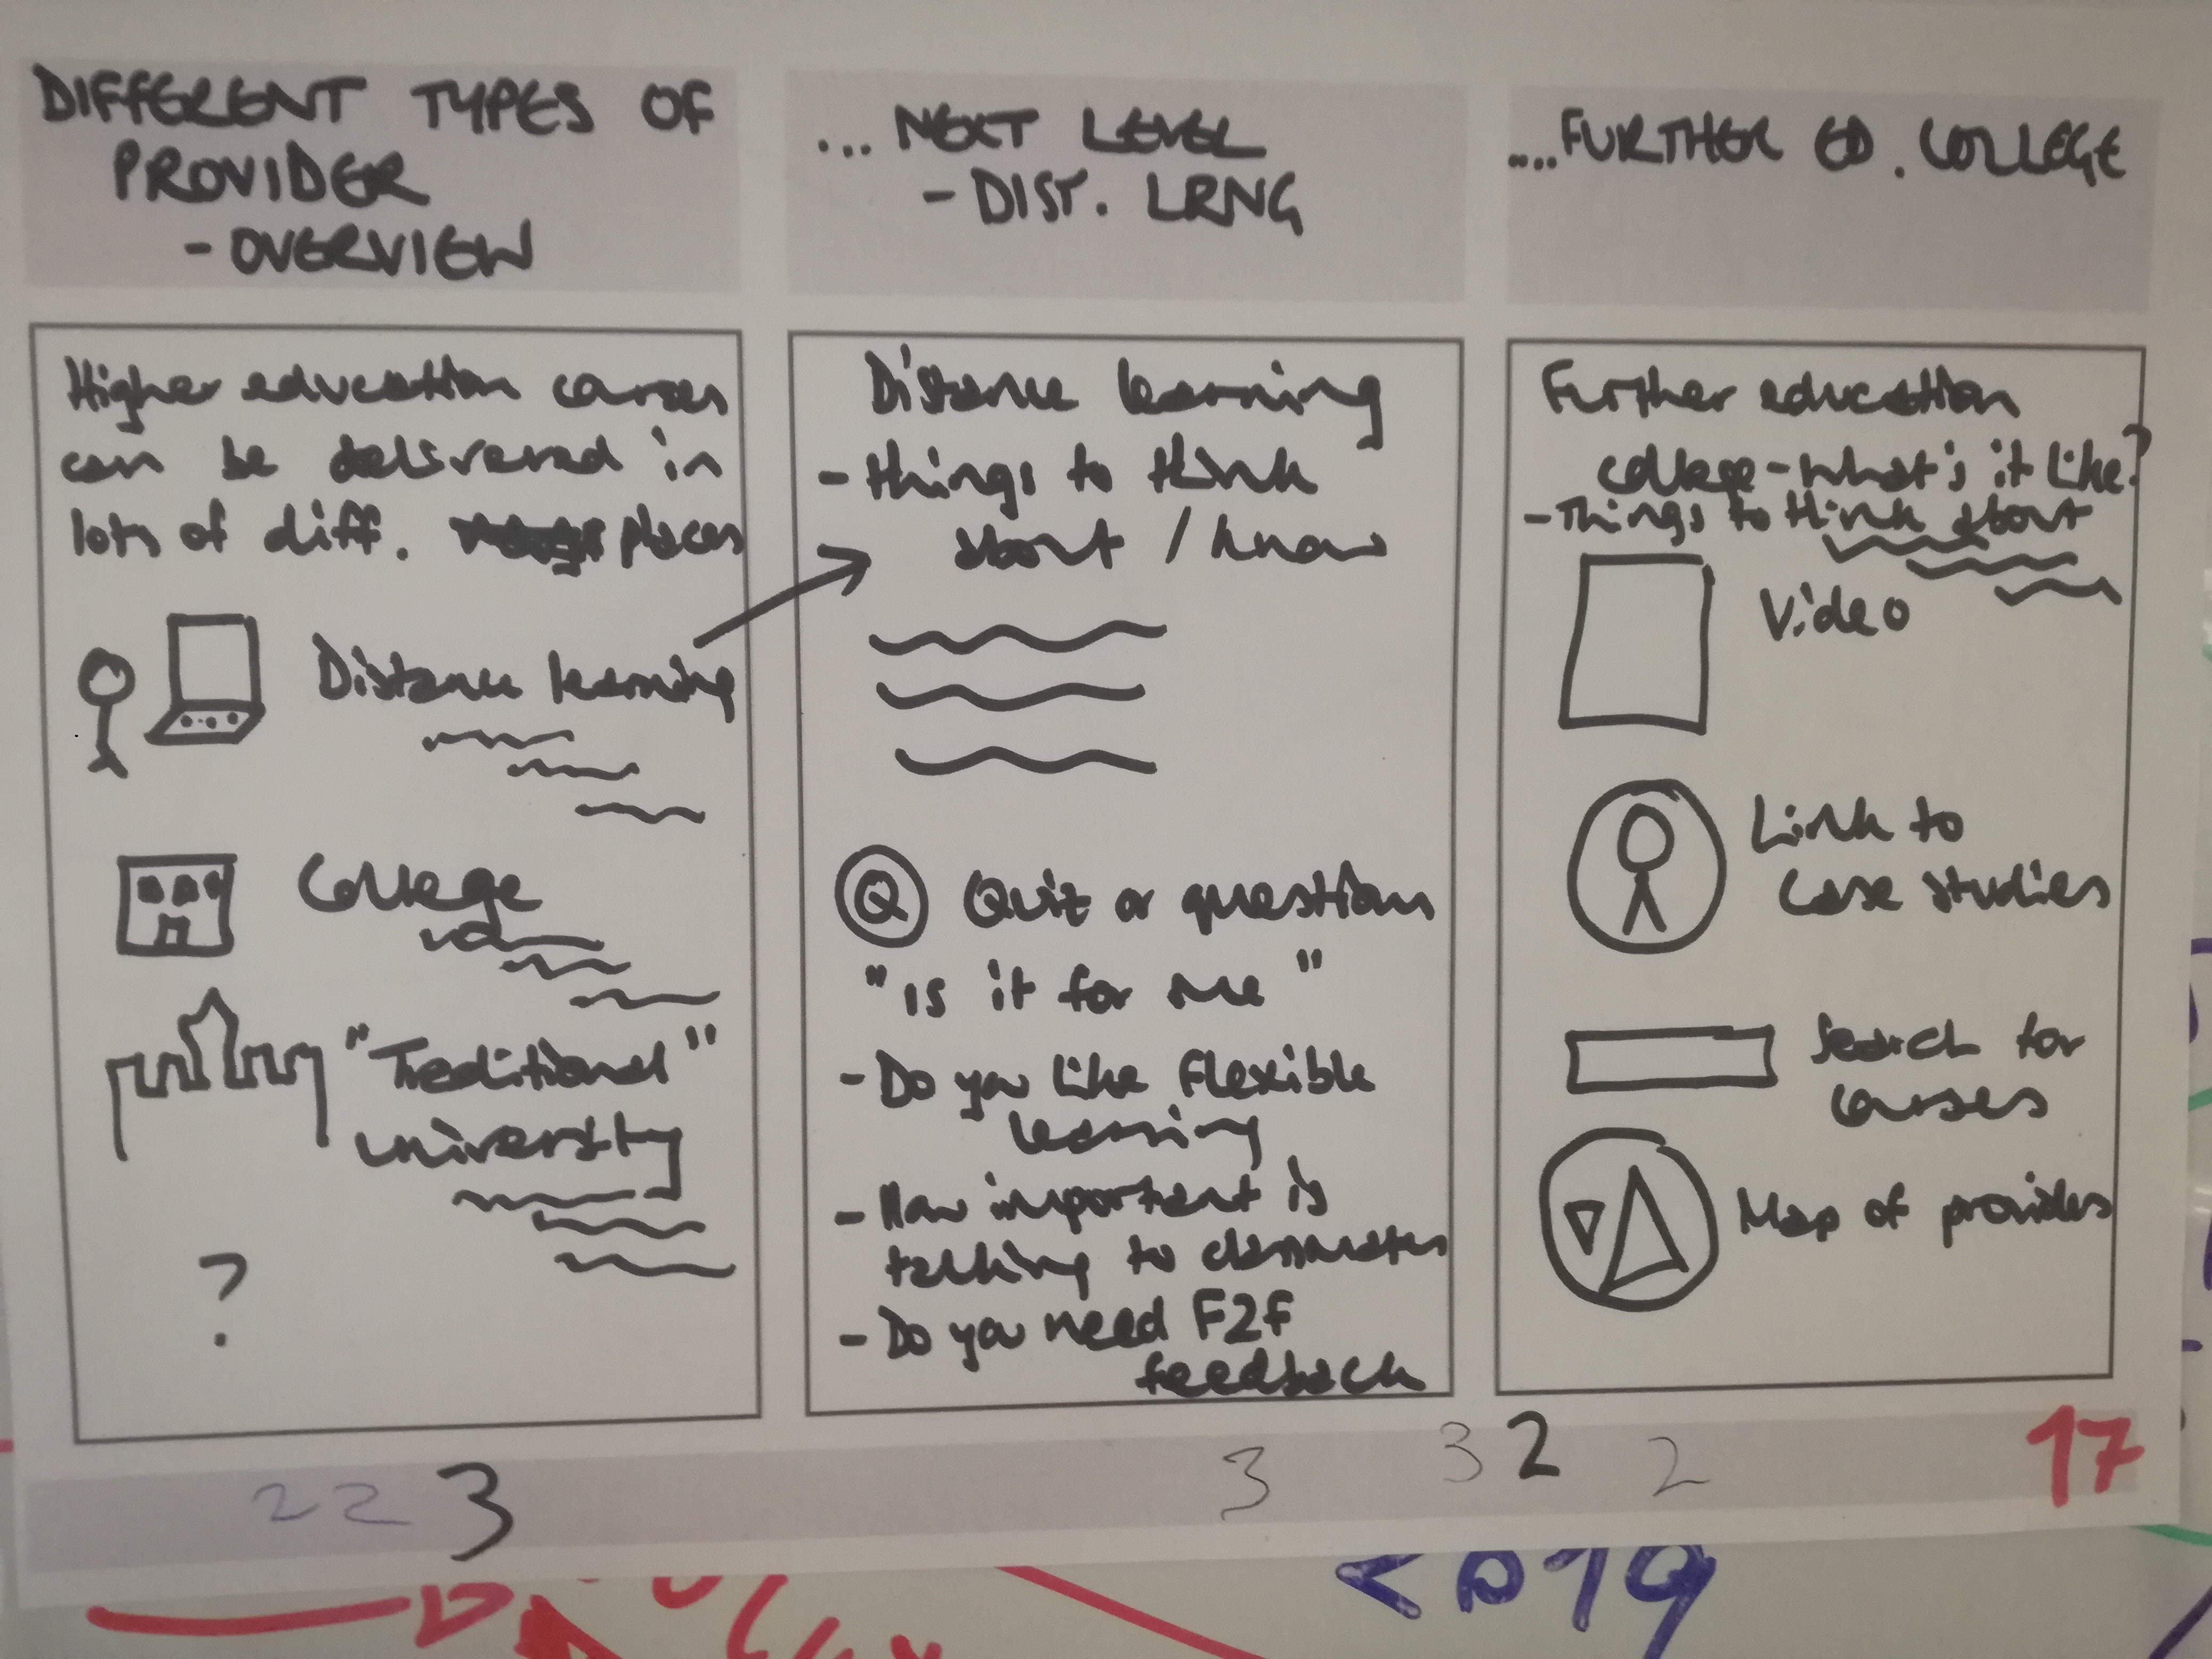 DIFFERENT TYPES OF
PROVIDER
- OVERVIEW
Higher education courses
can be delivered in
lots of diff. places
Distance learning
College
"Traditional"
university
?
... NEXT LEVEL
- DIST. LRNG
Distance learning
- things to think
about / know
Q Quiz or questions
"is it for me"
- Do you like flexible
learning
- How important is
talking to classmates
- Do you need F2F
feedback
....FURTHER ED. COLLEGE
Further education
college - what's it like?
- Things to think about
Video
Link to
case studies
Search for
courses
Map of providers
2 2 3
3
3 2 2
17